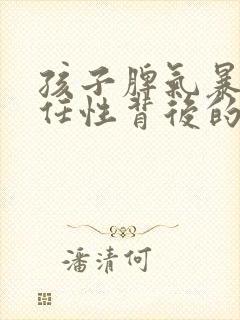 孩子脾氣暴
任性背後的
潘清何